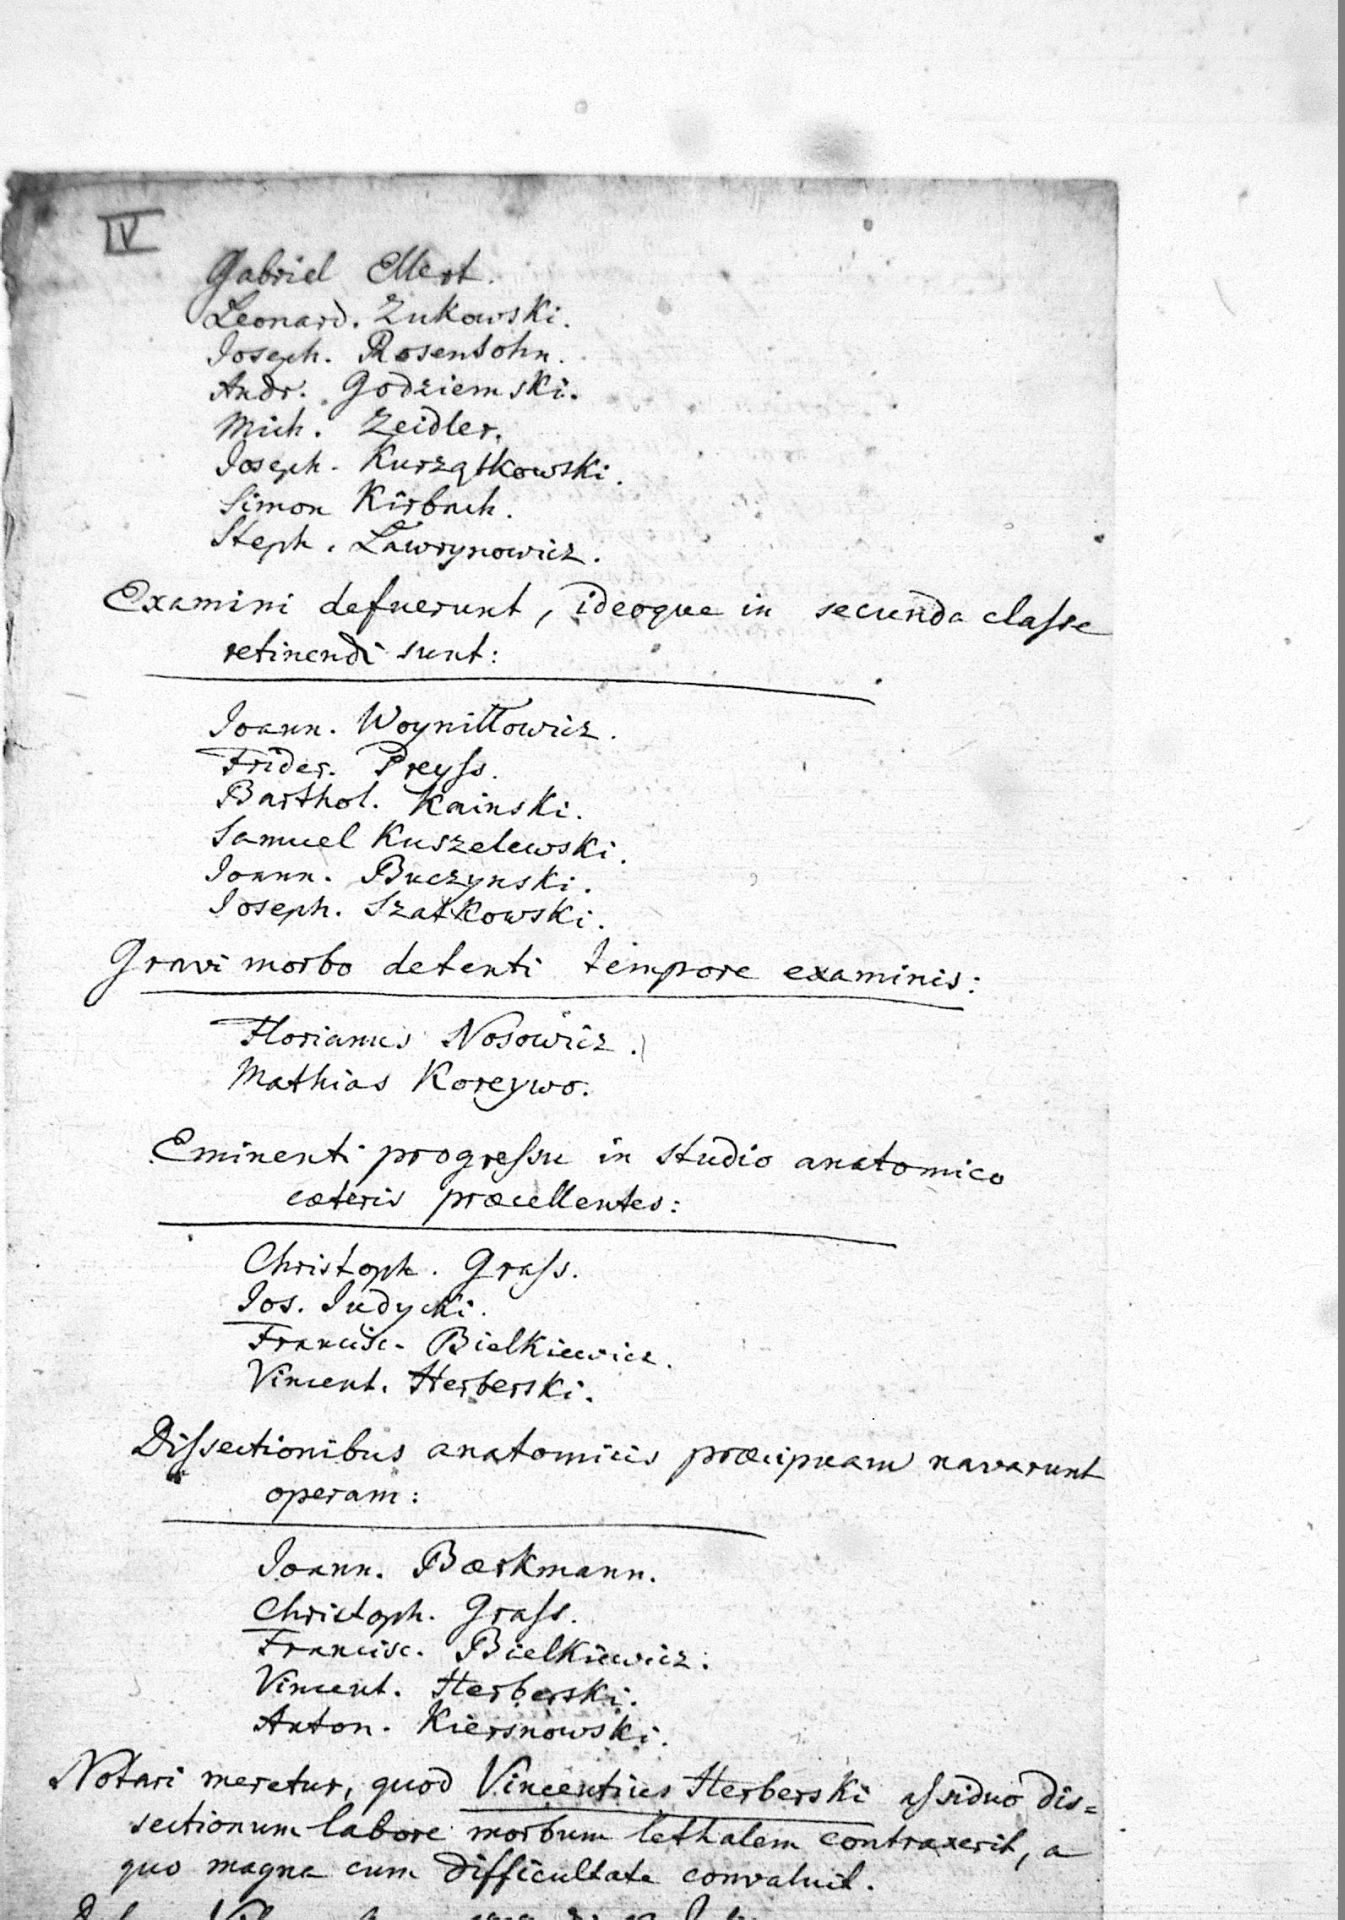 IV
Gabriel Ellert.
Leonard. Zukowski.
Joseph. Rosensohn.
Andr. Godziemski.
Mich. Zeidler.
Joseph. Kurzątkowski.
Simon Kirbach.
Steph. Ławrynowicz.
Examini defuerunt, ideoque in secunda classe
retinendi sunt:
Joann. Woyniłłowicz.
Frider. Preyss.
Barthol. Kainski.
Samuel Kuszelewski.
Joann. Buczynski.
Joseph. Szatkowski.
Gravi morbo detenti tempore examinis:
Florianus Nosowicz.
Mathias Koreywo.
Eminenti progressu in studio anatomico
cæteris præcellentes:
Christoph. Grass.
Jos. Judycki.
Francisc. Bielkiewicz.
Vincent. Herberski.
Dissectionibus anatomicis præcipuam navarunt
operam:
Joann. Bærkmann.
Christoph. Grass.
Francisc. Bielkiewicz.
Vincent. Herberski.
Anton. Kiersnowski.
Notari meretur, quod Vincentius Herberski assiduo dis=
sectionum labore morbum lethalem contraxerit, a
quo magna cum difficultate convaluit.